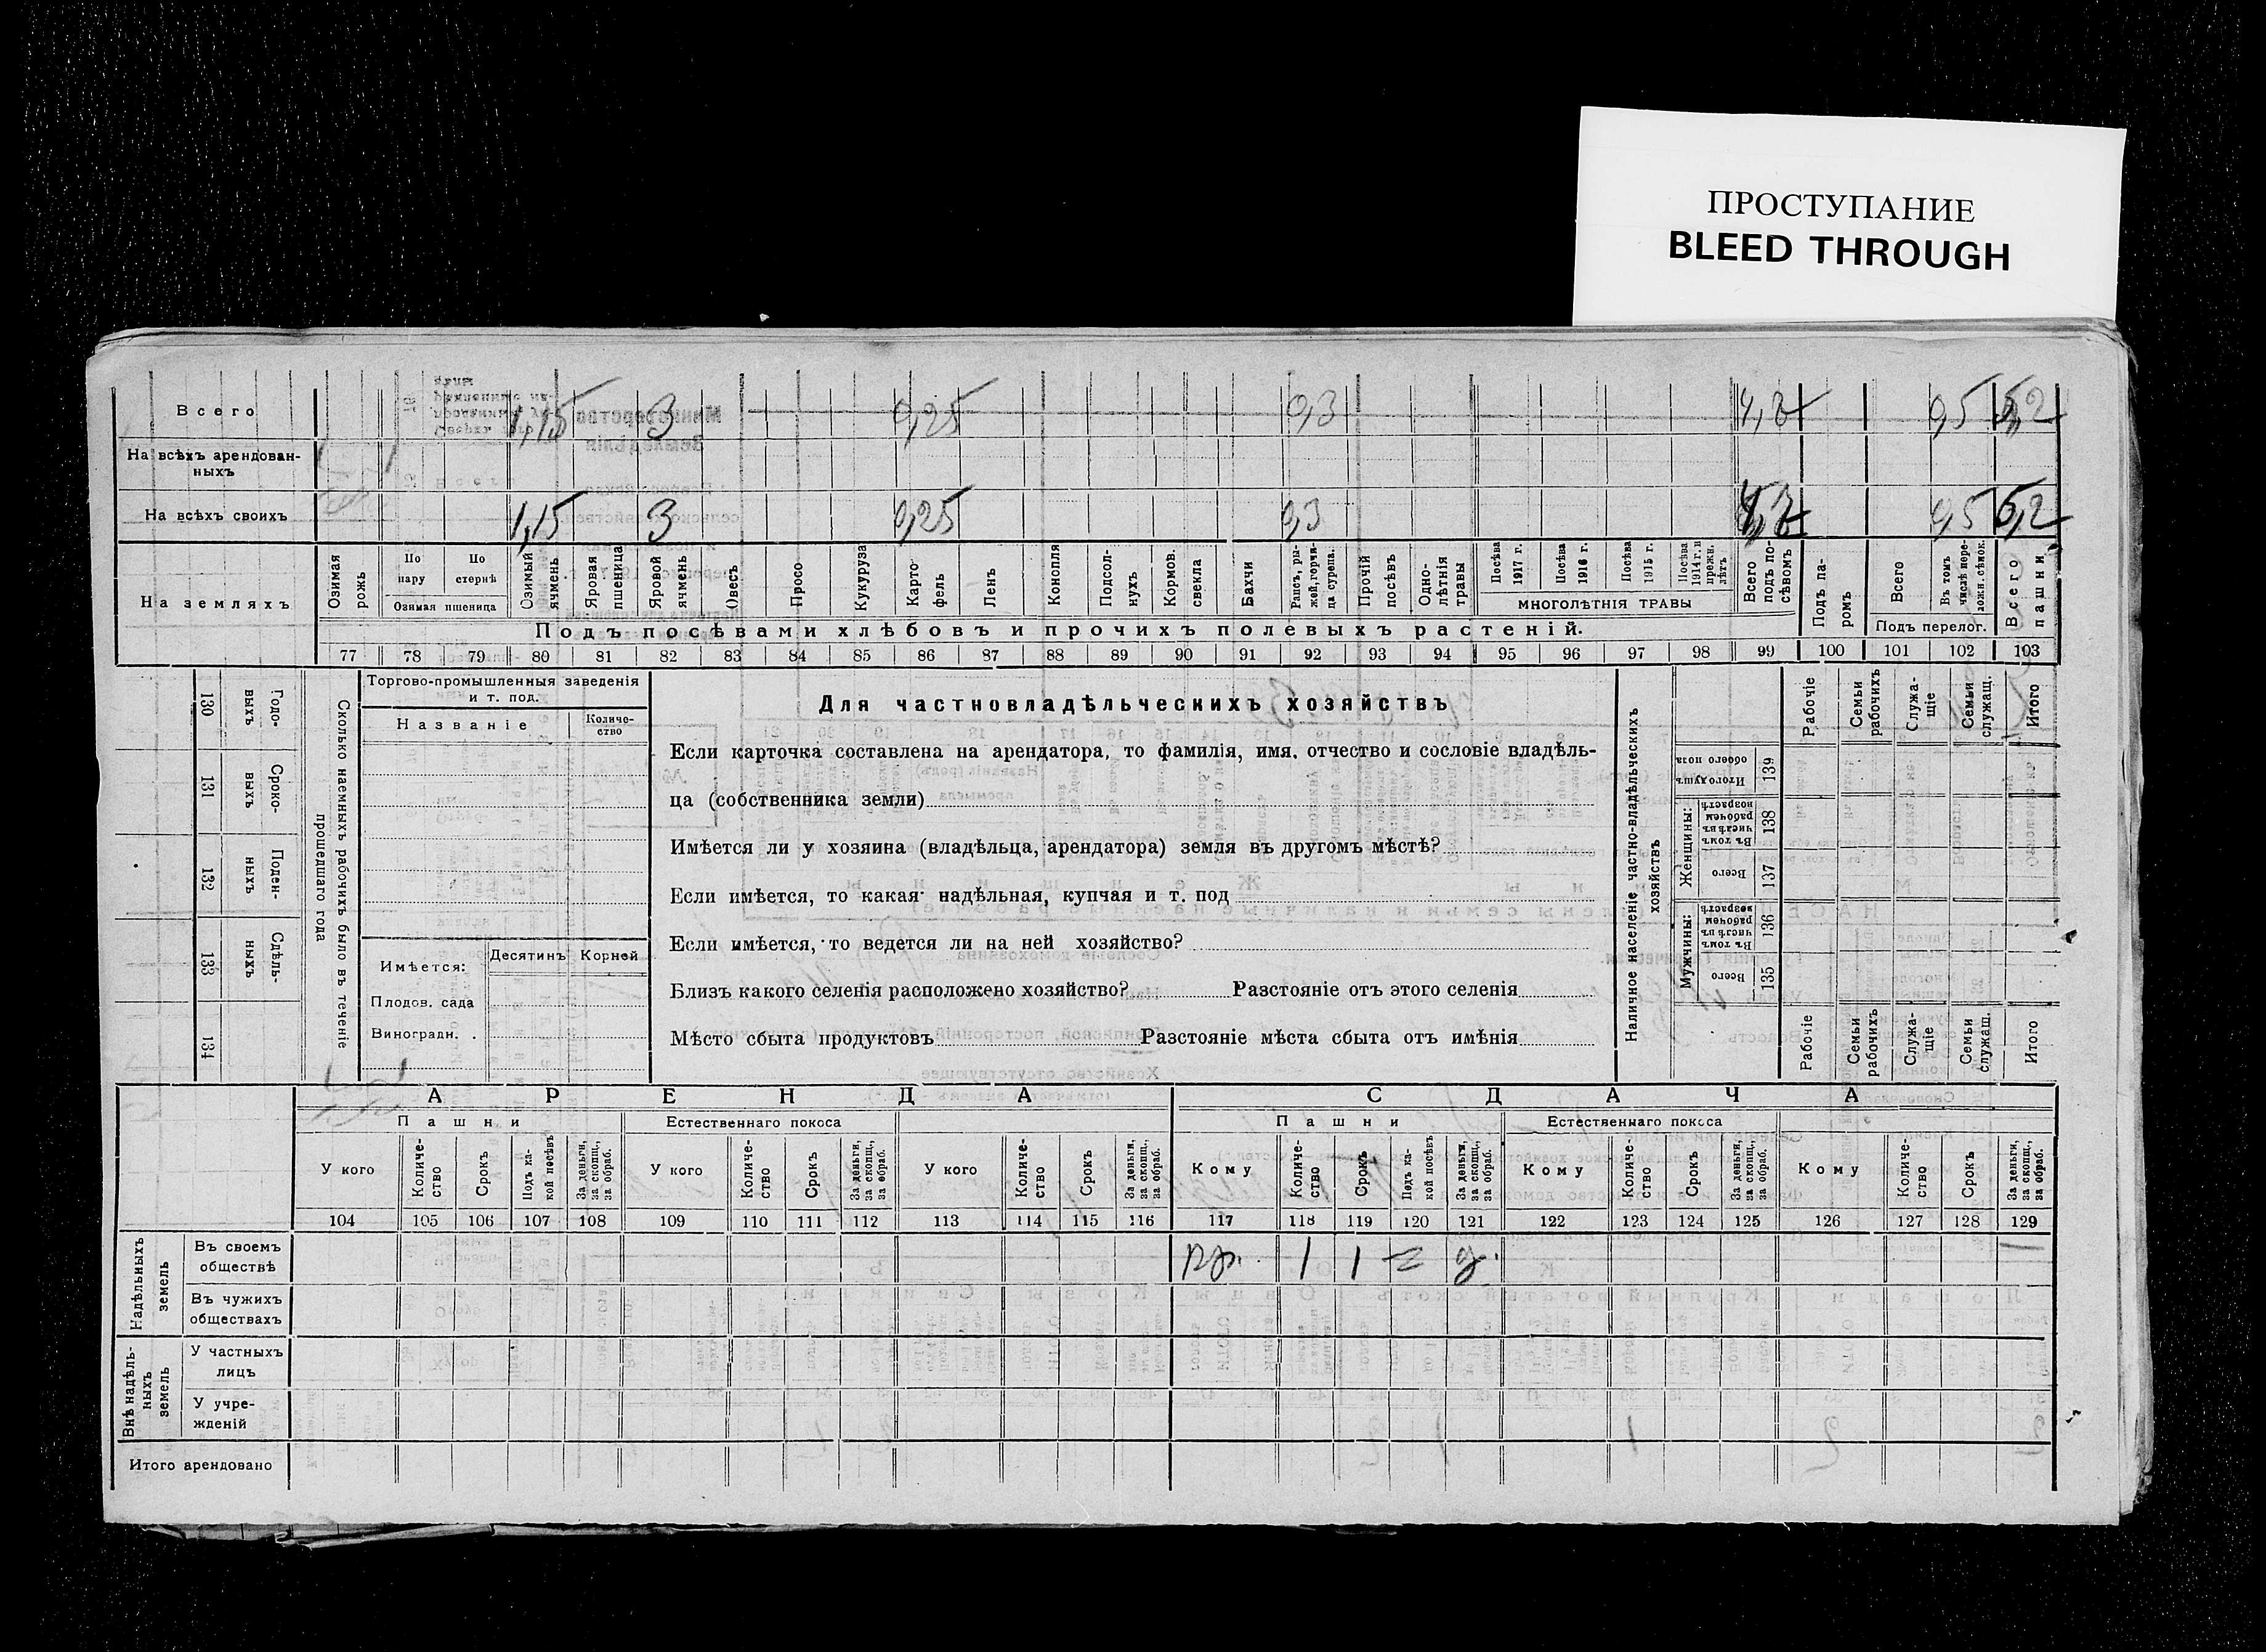 ПРОСТУПАНИЕ
BLEED THROUGH
Всего 1,15 3 0,25 0,3 0,5 5,2
На всѣхъ арендован-
ныхъ
На всѣхъ своихъ 1,15 3 0,25 0,3 0,5 5,2
На земляхъ
Озимая рожь
По пару
По стернѣ
Озимая пшеница
Озимый ячмень
Яровая пшеница
Яровой ячмень
Овесъ
Просо
Кукуруза
Карто-
фель
Ленъ
Конопля
Подсол-
нухъ
Кормов. свекла
Бахчи
Рапсъ, ры-
жей, горчи-
ца сурепа.
Прочій посѣвъ
Одно-
лѣтнія травы
Посѣва 1917 г.
Посѣва 1916 г.
Посѣва 1915 г.
Посѣва 1914 г. и прежн. лѣтъ
МНОГОЛѢТНІЯ ТРАВЫ
Всего подъ по-
сѣвомъ
Подъ па-
ромъ
Всего
Въ томъ числѣ пере-
ложн. сѣнок.
Подъ перелог.
Всего пашни
Подъ посѣвами хлѣбовъ и прочихъ полевыхъ растеній.
77 78 79 80 81 82 83 84 85 86 87 88 89 90 91 92 93 94 95 96 97 98 99 100 101 102 103
130 Годо-
выхъ
131 Сроко-
выхъ
132 Поден-
ныхъ
133 Сдѣль-
ныхъ
134
Сколько наемныхъ рабочихъ было въ теченіе
прошедшаго года
Торгово-промышленныя заведенія
и т. под.
Названіе
Количе-
ство
Имѣется:
Десятинъ
Корней
Плодов. сада
Виноградн.
Для частновладѣльческихъ хозяйствъ
Если карточка составлена на арендатора, то фамилія, имя, отчество и сословіе владѣль-
ца (собственника земли)
Имѣется ли у хозяина (владѣльца, арендатора) земля въ другомъ мѣстѣ?
Если имѣется, то какая надѣльная, купчая и т. под
Если имѣется, то ведется ли на ней хозяйство?
Близъ какого селенія расположено хозяйство? Разстояніе отъ этого селенія
Мѣсто сбыта продуктовъ Разстояніе мѣста сбыта отъ имѣнія
Наличное население частно-владѣльческихъ
хозяйствъ
Рабочіе
Семьи рабочихъ
Служа-
щіе
Семьи служащ.
Итого
Итого душъ обоего пола 139
Женщины:
Въ томъ числѣ въ рабочем возрастѣ 138
Всего 137
Мужчины:
Въ томъ числѣ въ рабочем возрастѣ 136
Всего 135
Рабочіе
Семьи рабочихъ
Служа-
щіе
Семьи служащ.
Итого
АРЕНДА
СДАЧА
Пашни
Естественнаго покоса
Пашни
Естественнаго покоса
У кого
Количе-
ство
Срокъ
Подъ ка-
кой посѣвъ
За деньги,
за скопщ.,
за обраб.
У кого
Количе-
ство
Срокъ
За деньги,
за скопщ.,
за обраб.
У кого
Количе-
ство
Срокъ
За деньги,
за скопщ.,
за обраб.
Кому
Количе-
ство
Срокъ
Подъ ка-
кой посѣвъ
За деньги,
за скопщ.,
за обраб.
Кому
Количе-
ство
Срокъ
За деньги,
за скопщ.,
за обраб.
Кому
Количе-
ство
Срокъ
За деньги,
за скопщ.,
за обраб.
104 105 106 107 108 109 110 111 112 113 114 115 116 117 118 119 120 121 122 123 124 125 126 127 128 129
Надѣльныхъ
земель
Въ своемъ
обществѣ
1 1
Въ чужихъ
обществахъ
Внѣ надѣль-
ныхъ
земель
У частныхъ
лицъ
У учре-
жденій
Итого арендовано